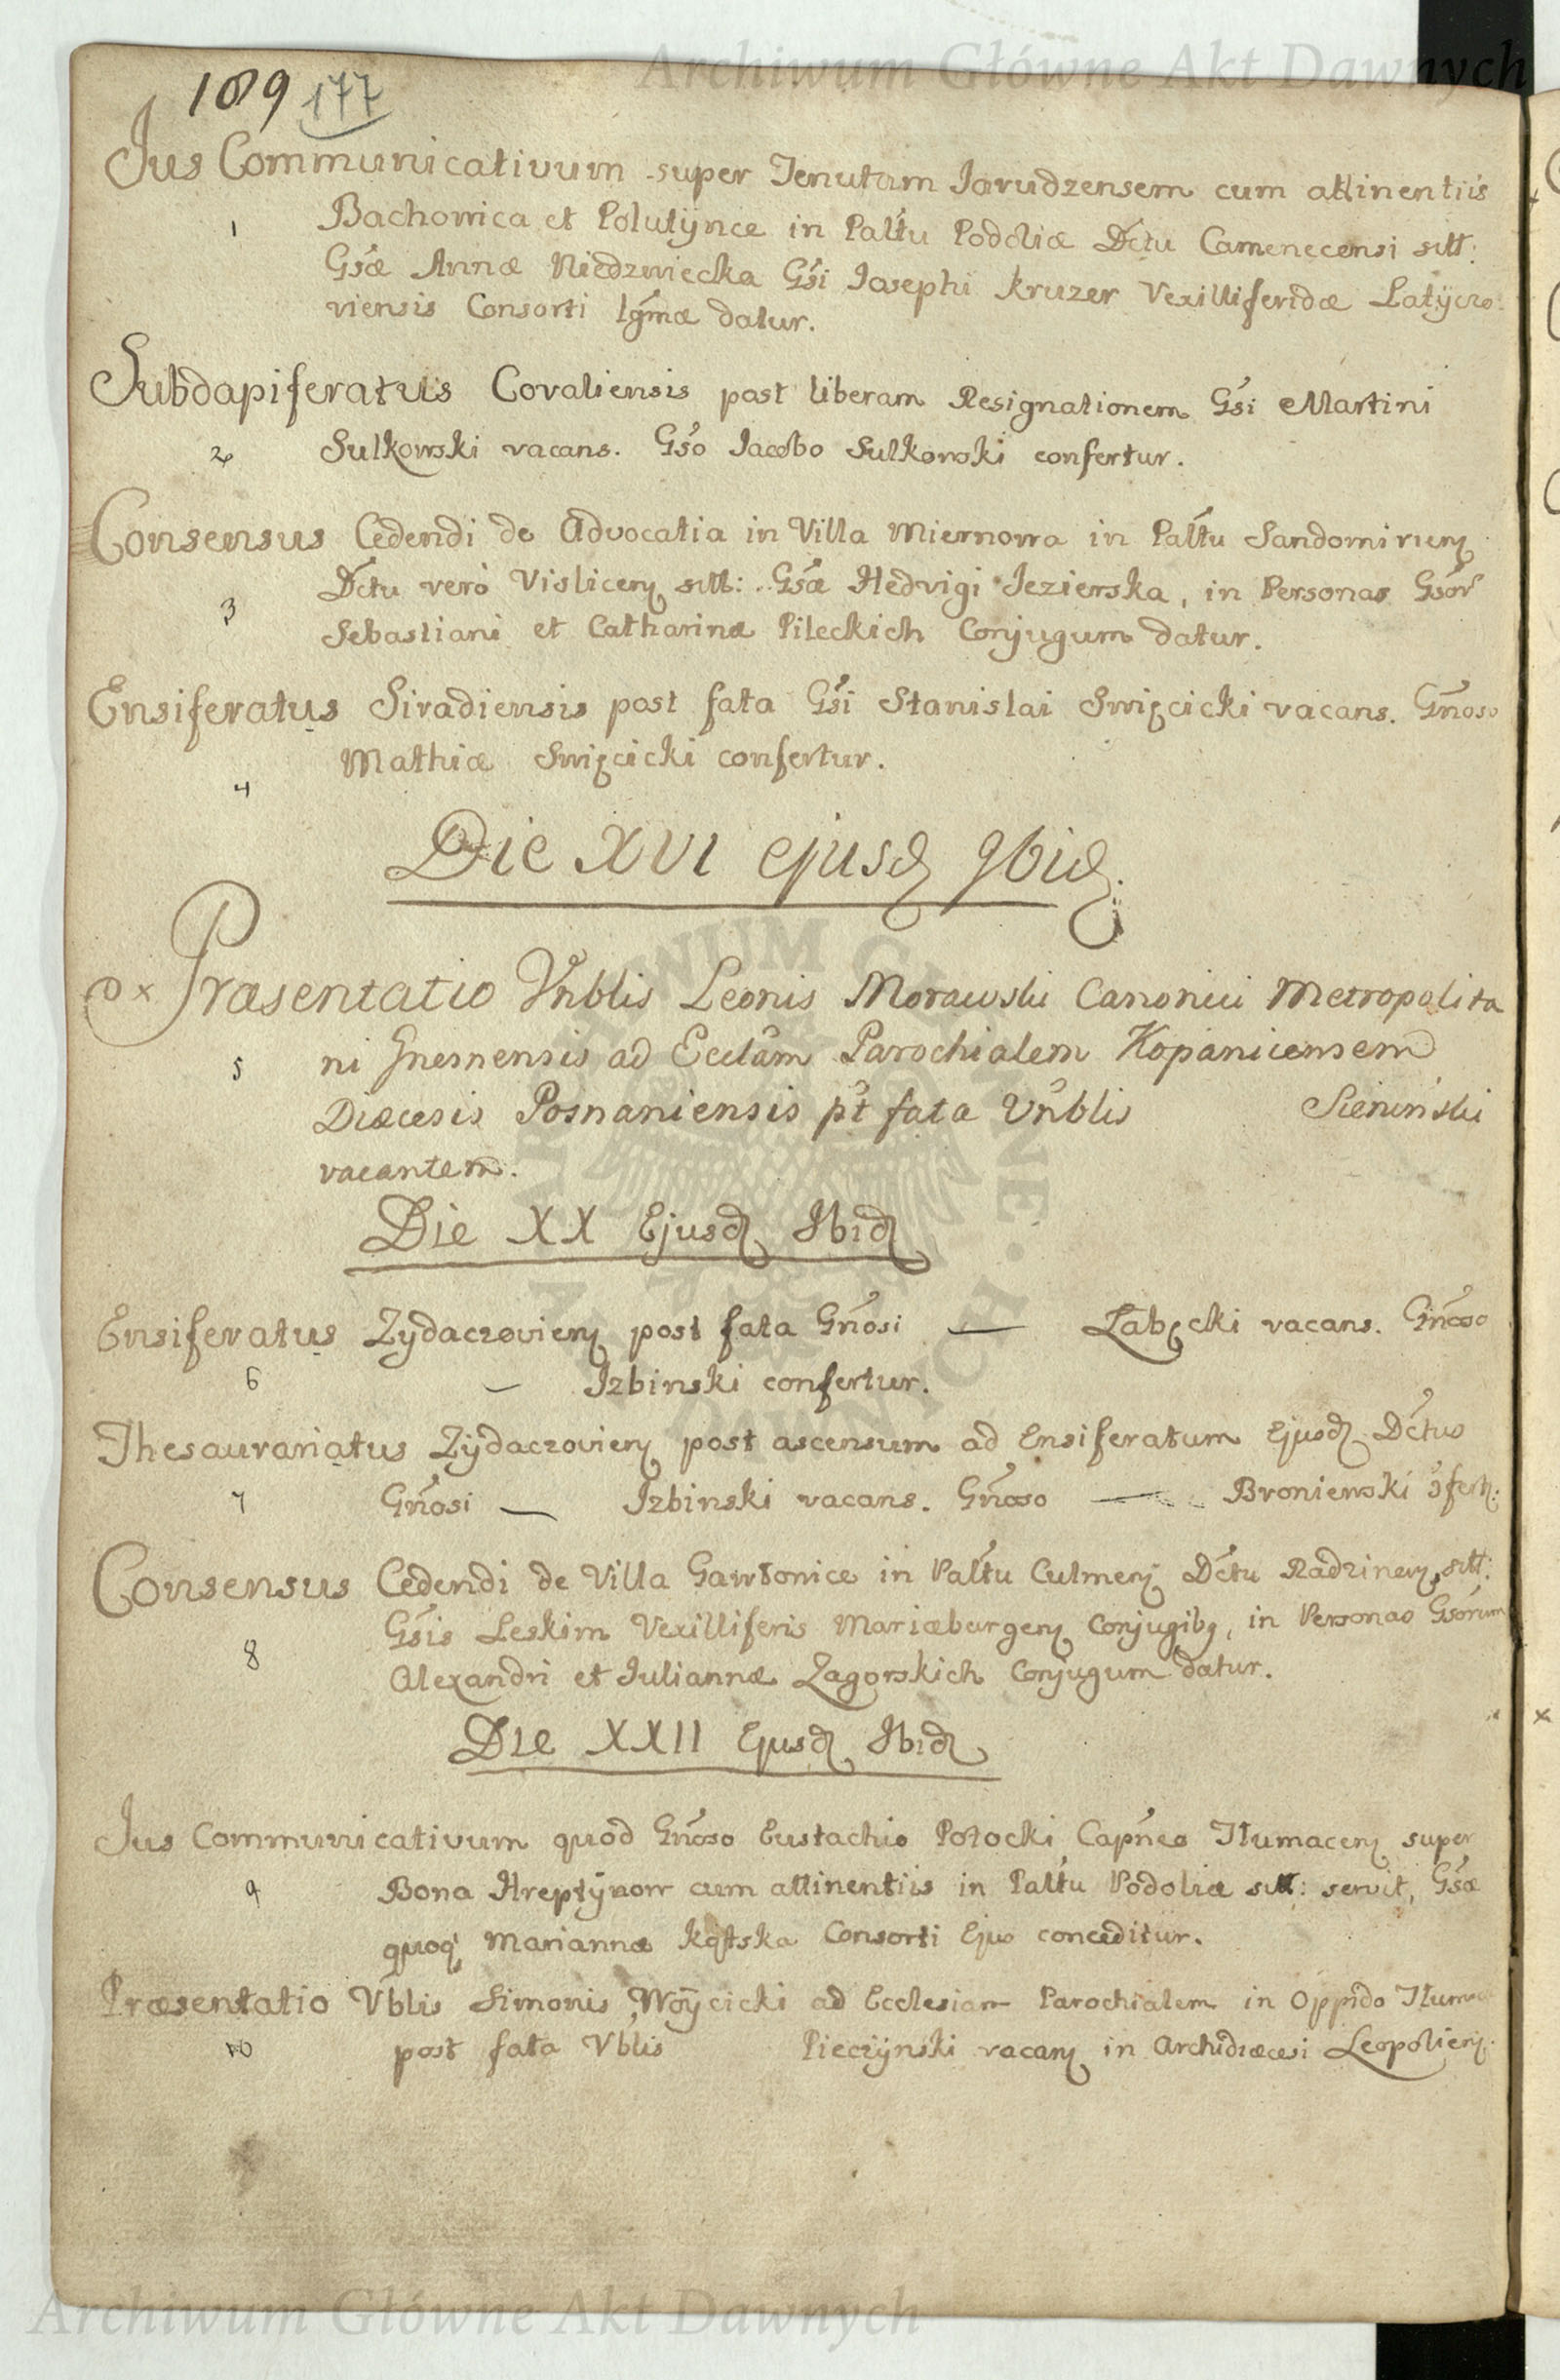 Archiwum Główne Akt Dawnych
189 177
Jus Communicativum super Tenutam Jarudzensem cum attinentiis
1 Bachowica et Polutÿnce in Paltu Podoliæ Dctu Camenecensi sitt:
Gsæ Annæ Niedzwiecka Gsi Josephi Kruzer Vexilliferidæ Latÿczo:
viensis Consorti lgmæ datur.
Subdapiferatus Covaliensis post liberam Resignationem Gsi Martini
2 Sulkowski vacans. Gso Jacobo Sulkowski confertur.
Consensus Cedendi de Advocatia in Villa Miernowa in Paltu Sandomirien
Dctu verò Vislicen sitt: Gsæ Hedvigi Jezierska, in Personas Gsor
3 Sebastiani et Catharinæ Pileckich Conjugum datur.
Ensiferatus Siradiensis post fata Gsi Stanislai Swięcicki vacans. Gnoso
Mathiæ Swięcicki confertur.
4
Die XVI ejusd Ibid.
Præsentatio Vnblis Leonis Morawski Canonici Metropolita
5 ni Gnesnensis ad Ecclam Parochialem Kopanicensem
Diæcesis Posnaniensis pt fata Vnblis Sieniński
vacantem.
Die XX Ejusd Ibid
Ensiferatus Zydaczovien post fata Gnosi — Łabęcki vacans. Gnoso
6 — Izbinski confertur.
Thesaurariatus Zÿdaczovien post ascensum ad Ensiferatum Ejusd Dctus
7 Gnosi — Izbinski vacans. Gnoso — Broniewski
Consensus Cedendi de Villa Gawłonice in Paltu Culmen Dctu Radzinen sitt:
Gsis Leskim Vexilliferis Mariæburgen Conjugibg, in Personas Gsorum
8 Alexandri et Juliannæ Zagorskich Conjugum datur.
Die XXII Ejusd Ibid
Jus Communicativum quod Gnoso Eustachio Potocki Capneo Tłumacen super
9 Bona Hreptÿnow cum attinentiis in Paltu Podoliæ sitt: servit, Gsæ
quoq Mariannæ Kątska Consorti Ejus conceditur.
Præsentatio Vblis Simonis Woÿcicki ad Ecclesiam Parochialem in Oppido
10 post fata Vblis Pieczÿnski vacan in Archidiæcesi Leopolien.
Archiwum Główne Akt Dawnych